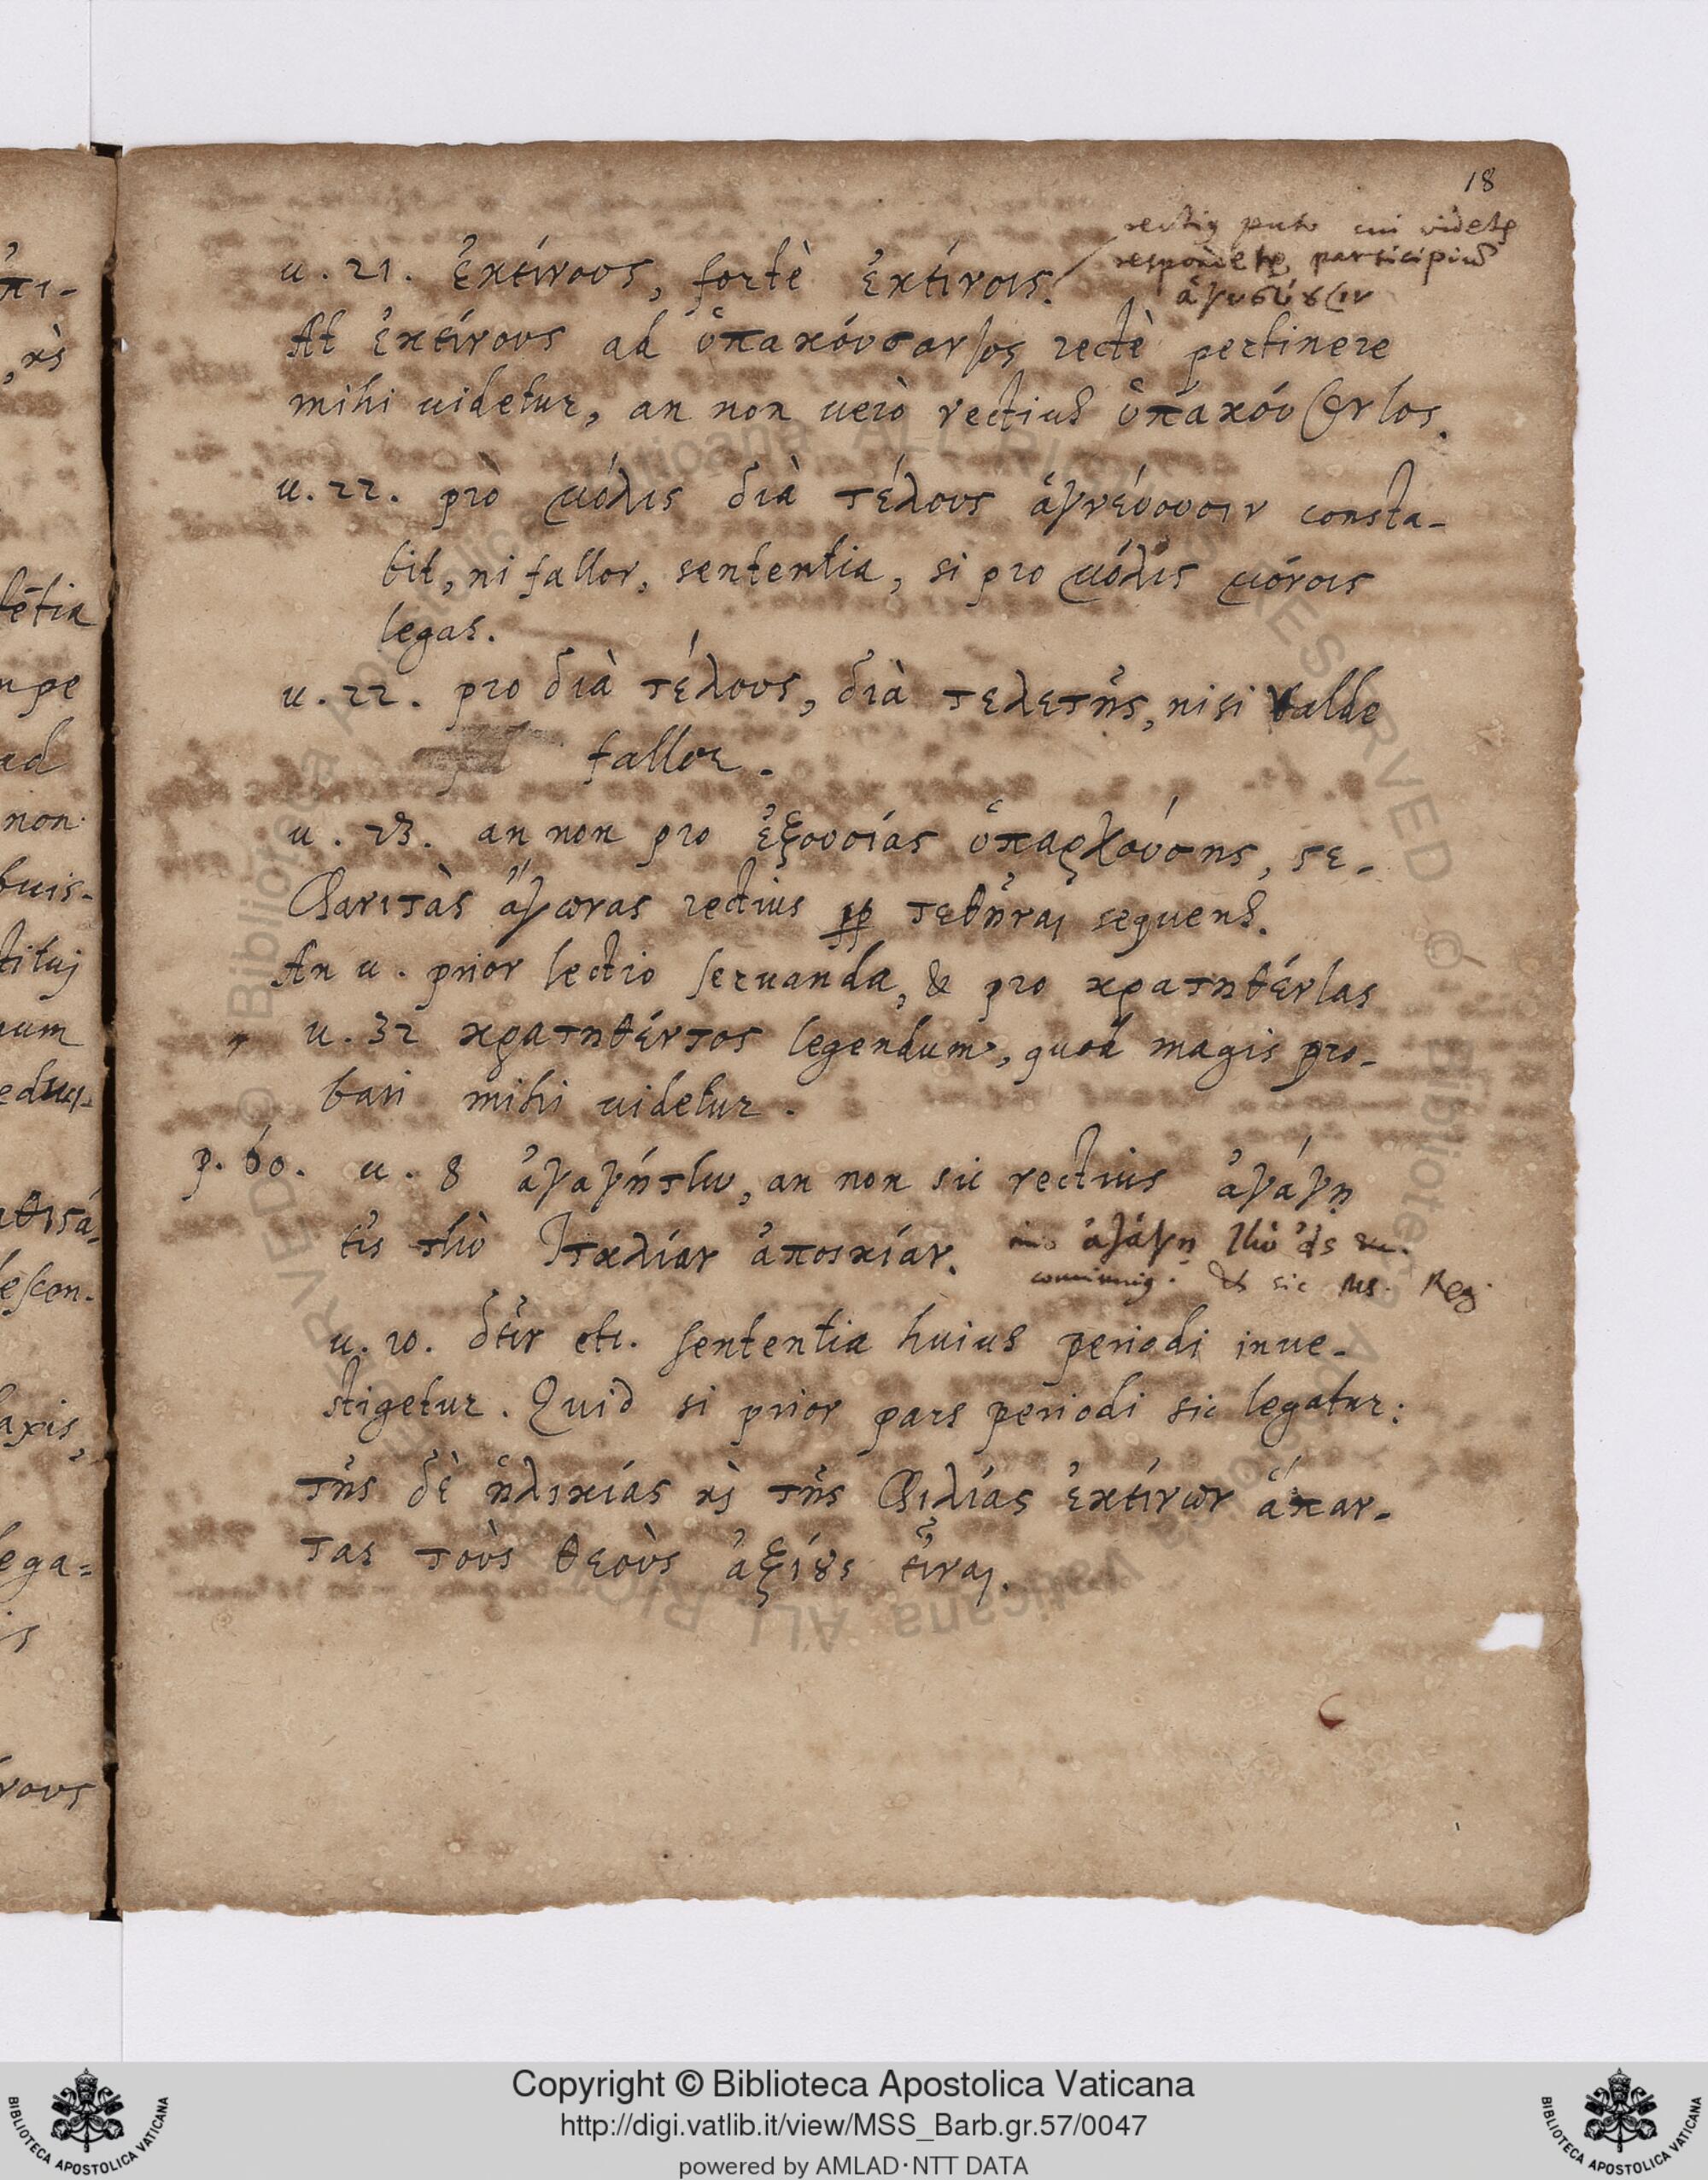 18
rectius puto cui videtur
respondere participium
ἁγιστεύουσιν
u. 21. ἐκείνους, fortè ἐκείνοις.
At ἐκείνους ad ὑπακούσαντος rectè pertinere
mihi uidetur, an non uerò rectius ὑπακούσοντος.
u. 22. prò μόλις διὰ τέλους ἁγνεύουσιν consta-
bit, ni fallor, sententia, si pro μόλις μόνοις
legas.
u. 22. pro διὰ τέλους, διὰ τελετῆς, nisi valde
fallor.
u. 23. an non pro ἐξουσίας ὑπαρχούσης, στε-
φανιτὰς ἀγῶνας rectius τεθῆναι sequens.
An u. prior lectio seruanda, & pro κρατηθέντας
u. 32 κρατηθέντος legendum, quod magis pro-
bari mihi uidetur.
p. 60. u. 8 ἀγαγήτην, an non sic rectius ἀγάγῃ
εἰς τὴν Ἰταλίαν ἀποικίαν.
ἀγάγῃ τὴν εἰς
& sic Ms. Reg.
u. 10. δεῖν etc. sententia huius periodi inue-
stigetur. Quid si prior pars periodi sic legatur:
τῆς δὲ ἡλικίας καὶ τῆς φιλίας ἐκείνων ἅπαν-
τας τοὺς θεοὺς ἀξίους εἶναι.
Copyright © Biblioteca Apostolica Vaticana
http://digi.vatlib.it/view/MSS_Barb.gr.57/0047
powered by AMLAD·NTT DATA
BIBLIOTECA APOSTOLICA VATICANA
BIBLIOTECA APOSTOLICA VATICANA